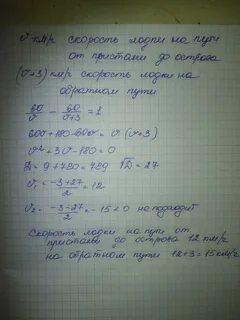 v км/ч скорость лодки на пути
от пристани до острова
(v+3) км/ч скорость лодки на
обратном пути
60/v - 60/(v+3) = 1
60v+180-60v = v(v+3)
v²+3v-180=0
D=9+720=729 √D=27
v₁ = (-3+27)/2 = 12
v₂ = (-3-27)/2 = -15<0 не подходит
Скорость лодки на пути от
пристани до острова 12 км/ч
на обратном пути 12+3=15км/ч